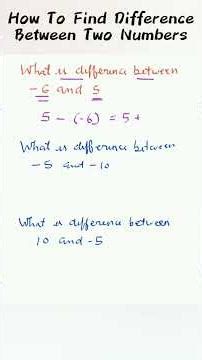 How To Find Difference
Between Two Numbers
What is difference between
-6 and 5
5 - (-6) = 5 +
What is difference between
-5 and -10
What is difference between
10 and -5